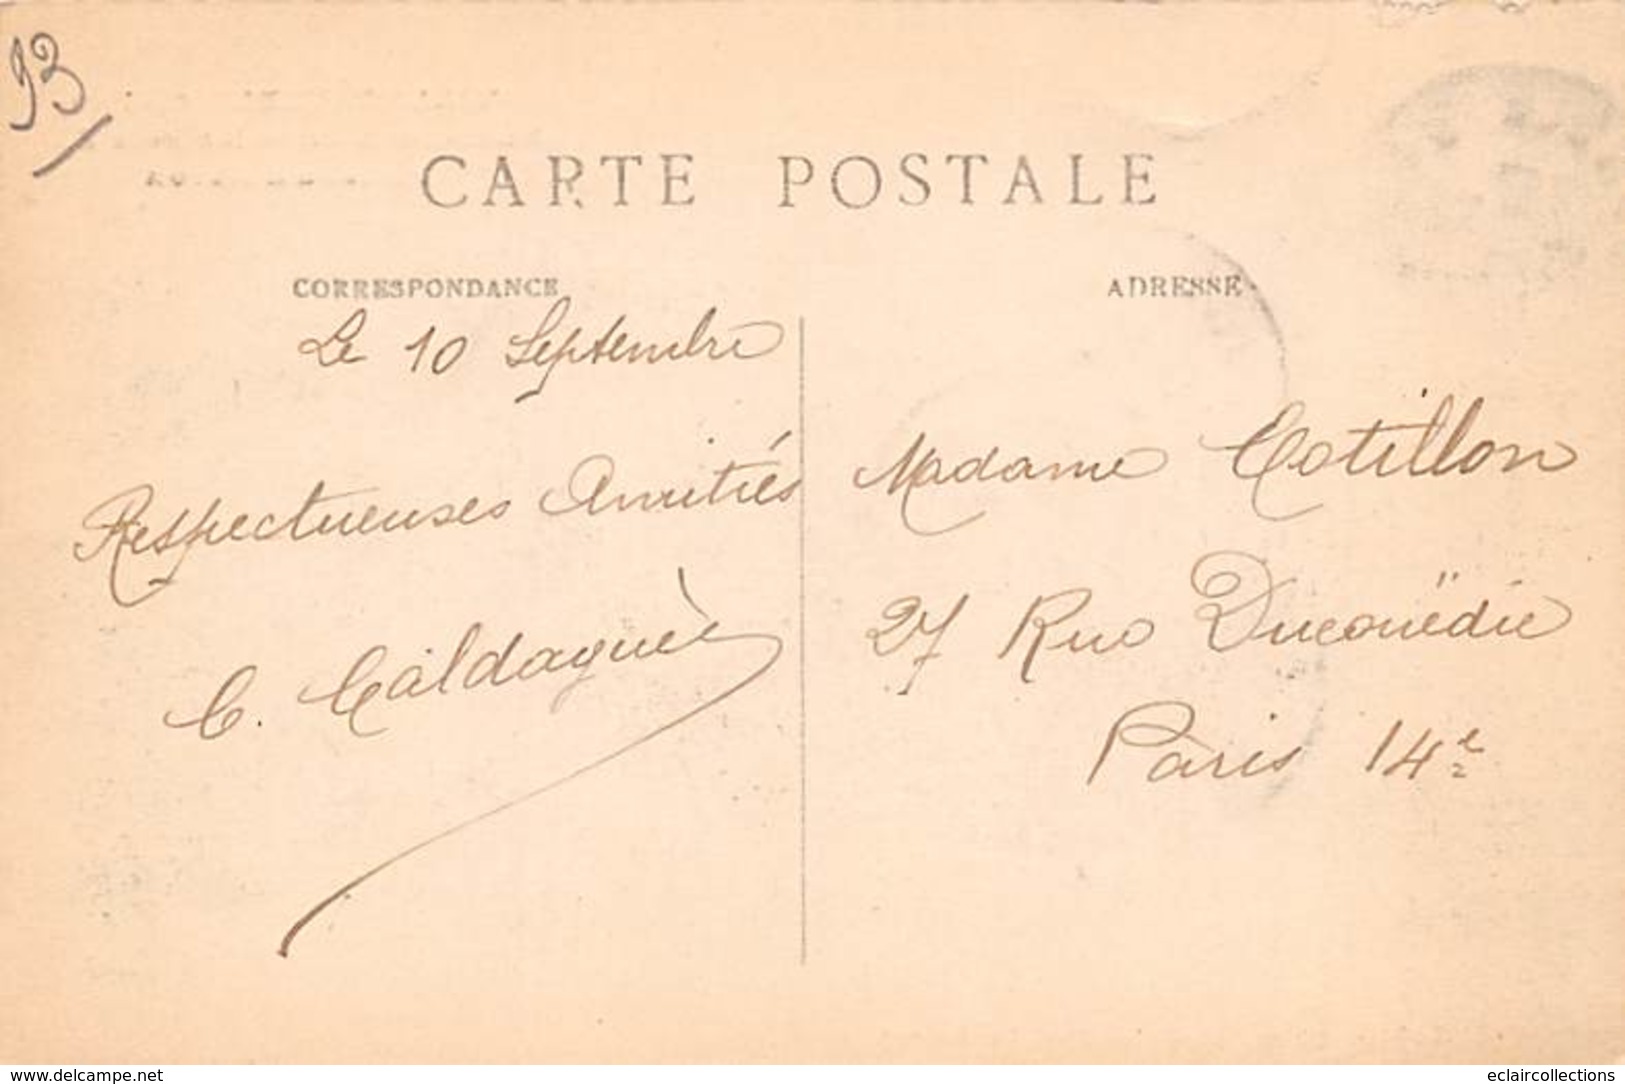 93
CARTE POSTALE
CORRESPONDANCE
Le 10 Septembre
Respectueuses Amitiés
C. Caldaguès
ADRESSE
Madame Cotillon
27 Rue Ducouëdic
Paris 14e
www.delcampe.net
eclaircollections